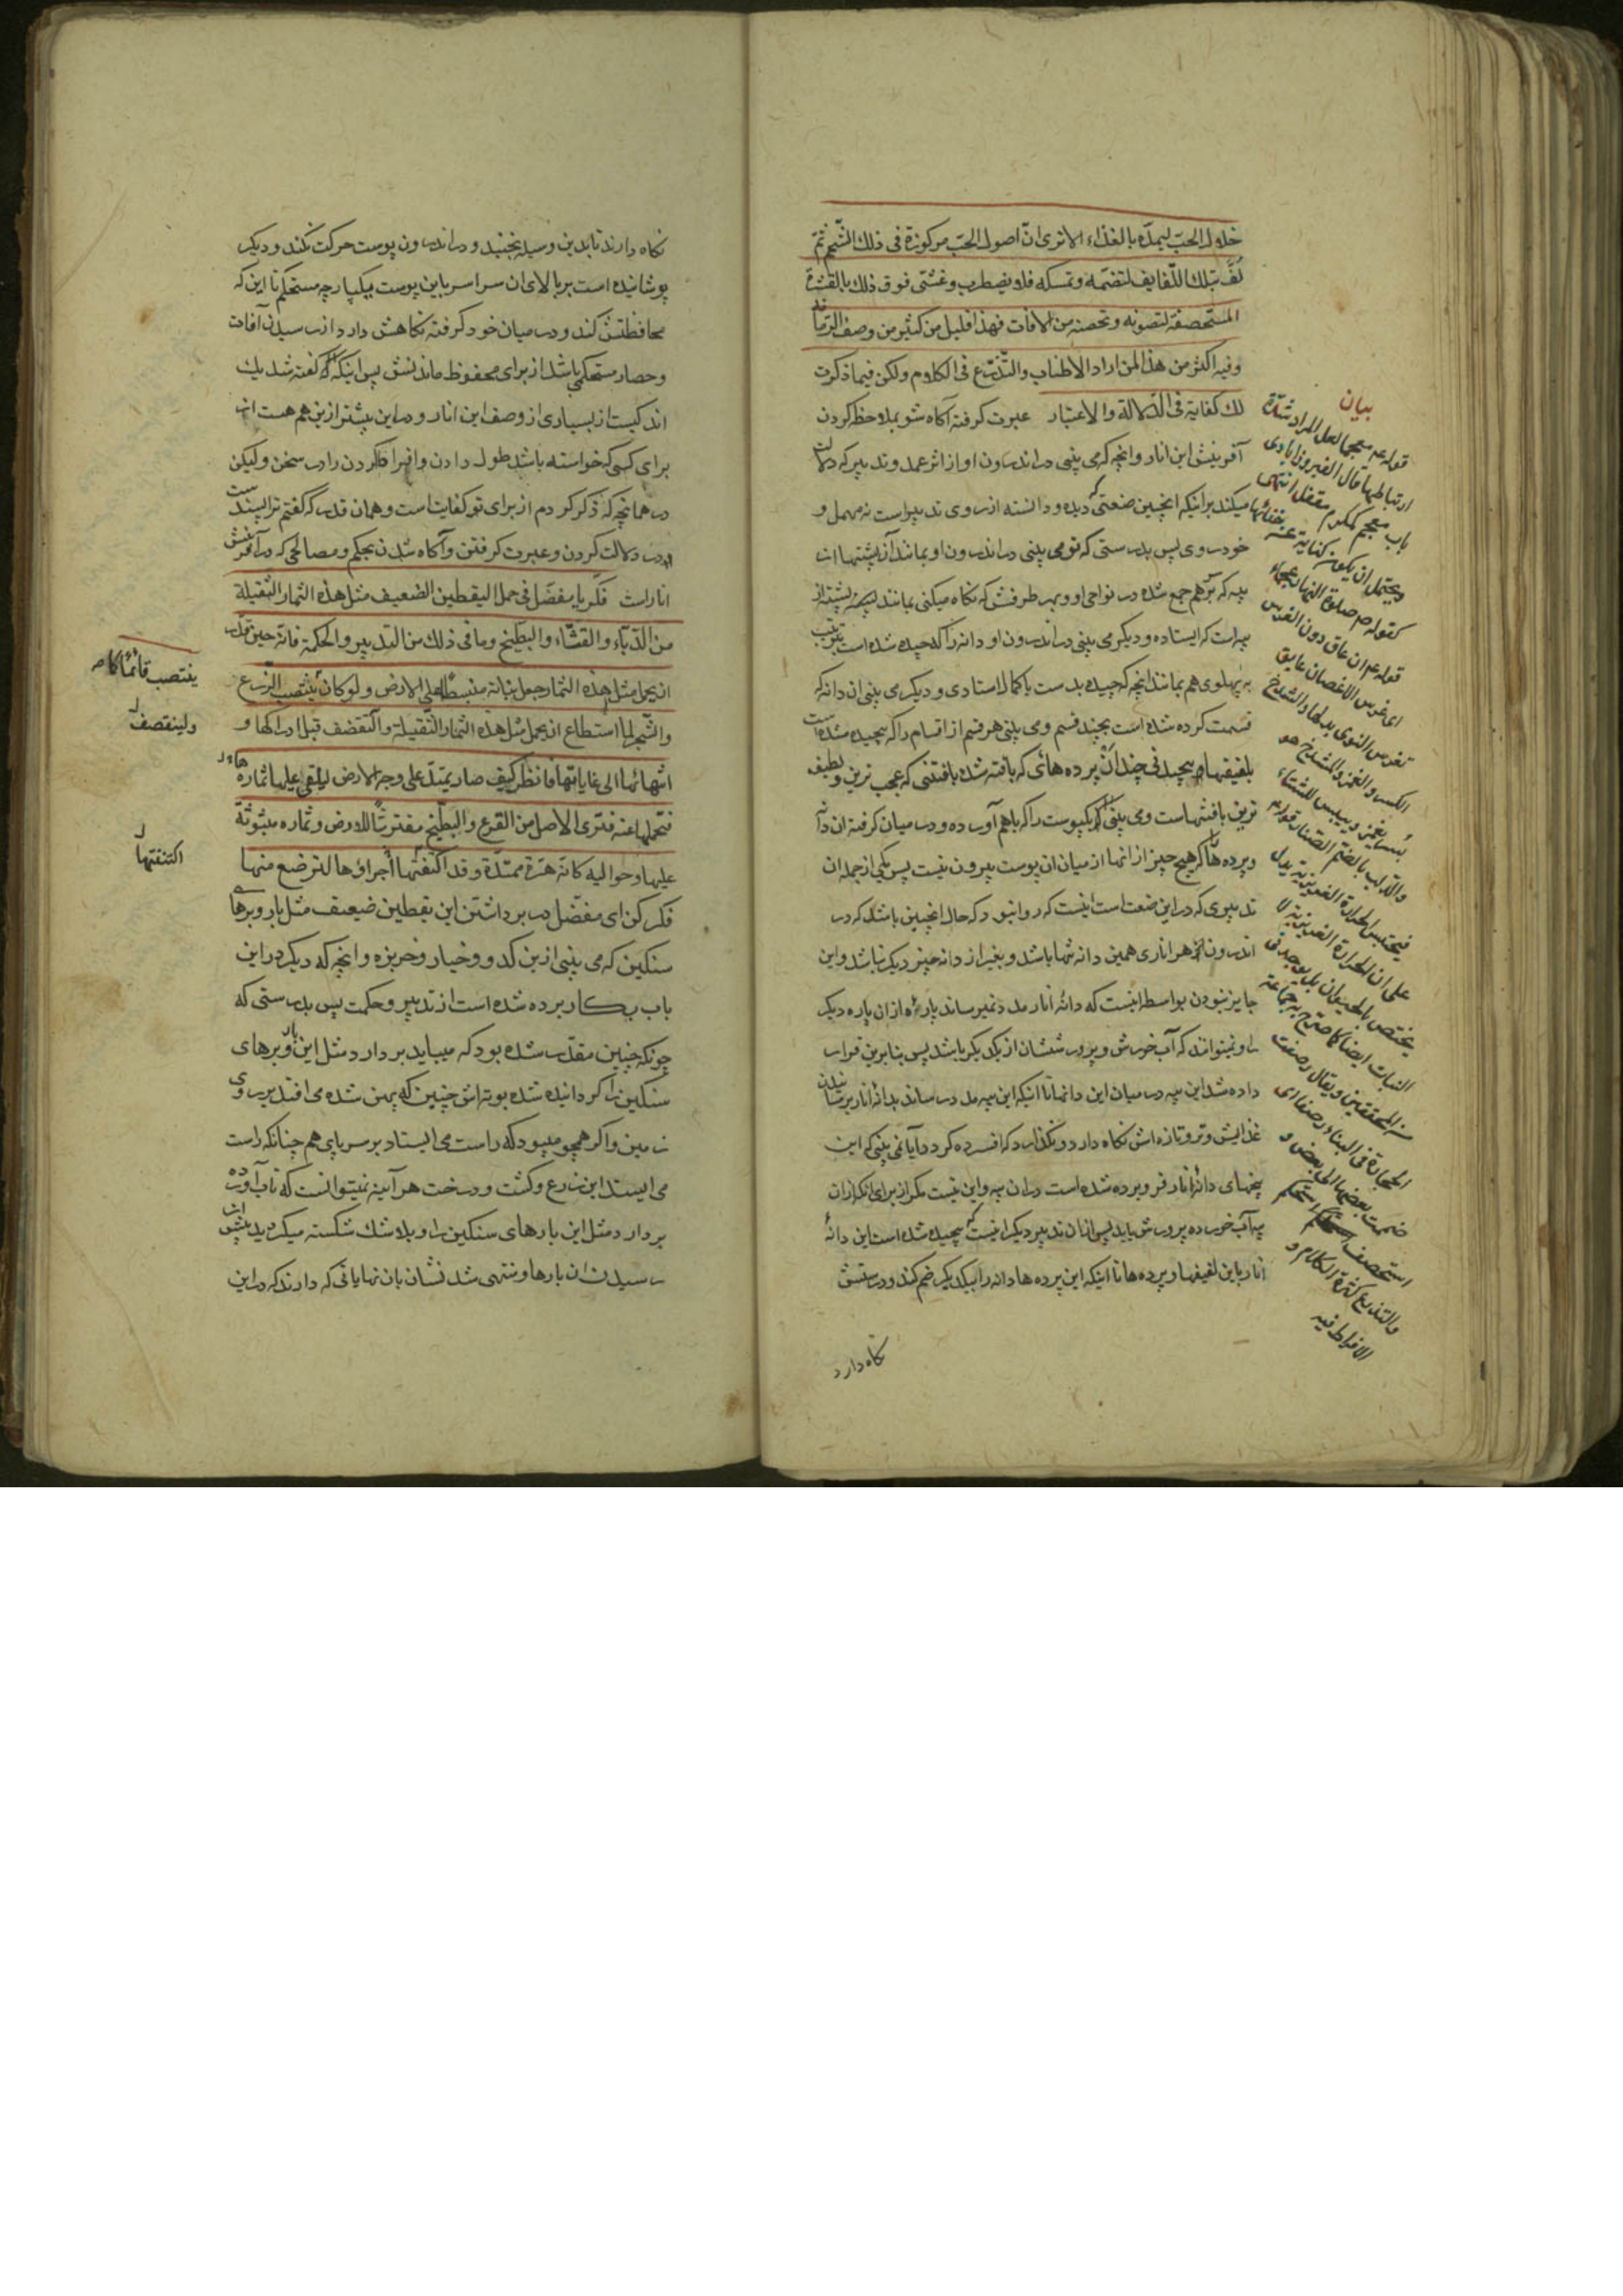 خلال الحبّ ليمدّه بالغذاء الا ترى انّ اصول الحبّ مركوزة فى ذلك الشّحم ثمّ
لُفَّ بتلك اللّفايف لتضمّه وتمسكه فلا يضطرب وغشّى فوق ذلك بالقشرة
المستحصفة لتصونه وتحصنه من الافات فهذا قليل من كثير من وصف الرّمان
وفيه اكثر من هذا لمن اراد الاطناب والتّذرّع فى الكلام ولكن فيما ذكرت
لك كفاية فى الدّلالة والاعتبار عبرت كرفته آكاه شو بملاحظه كردن
آفرينش اين انار وانچه كه مى بينى در اندرون او از اثر عمد وتدبير كه دلالت
ميكند بر اينكه اينچنين صنعتى ديده ودانسته از روى تدبير است نه مهمل و
خودروى پس بدرستى كه تو مى بينى در اندرون او بمانند آن پشتها از
پيه كه بر هم جمع شده در نواحى او وبهر طرفش كه نكاه ميكنى بمانند
پيه است كه ايستاده وديكر مى بينى در اندرون او دانه را كه چيده شده است بترتيب
پهلوى هم بمانند انچه كه چيده بدست با كمال استادى وديكر مى بينى ان دانه كه
قسمت كرده شده است بچند قسم ومى بينى هر قسم از اقسام را كه پيچيده شده است
بلفيفها وپيچيدنى چند ان پرده هائى كه بافته شده بافتنى كه عجب ترين ولطيف
ترين بافتنهاست ومى بينى كه يكپوست را كه باهم آورده ودر ميان كرفته ان دانه
وپرده ها كه هيچ چيز از انها از ميان ان پوست بيرون نيست پس يكى از جمله ان
تدبيرى كه در اين صنعت است اينست كه روا نبود كه حال اينچنين باشد كه در
اندرون هر انارى همين دانه تنها باشد وبغير از دانه چيز ديكر نباشد واين
جايز نبودن بواسطه اينست كه دانه انار مدد نميرساند پاره از ان پاره ديكر
را ونميتواند كه آب خورش وپرورششان از يكديكر باشد پس بنابرين قرار
داده شد اين پيه در ميان اين دانها تا اينكه اين پيه مدد رساند بدانه انار برسانيدن
غذايش وتر وتازه اش نكاه دارد ونكذارد كه افسرده كردد آيا نمى بينى كه اين
بيخهاى دانه انار فرو برده شده است در ان پيه واين نيست مكر از براى انكه از ان
پيه آب خورده پرورش يابد پس از ان تدبير ديكر اينست كه پيچيده شده است اين دانه
انار باين لفيفها وپرده ها تا اينكه اين پرده ها دانه را بيكديكر ضم كند ودرستش
نكاه دارد
بيان
قوله ع م لعل المراد شدّة
ارتباطها قال الفيروزابادى
باب مبهم كمكرم مغلق انتهى
ويحتمل ان يكون كناية عن خفائها
كقوله ص صلوة النهار عجماء
قوله ع م ان عاق دون الغرس
اى غرس الاغصان عايق
تغرس النوى بدلها والشدخ
الكسر والغمز والمشدخ هو
بسر يغمز وييبس للشتاء
والدلب بالضم الصنار قوله ع
فيحتبس الحرارة الغريزية يدل
على ان الحرارة الغريزية لا
يختص بالحيوان بل يوجد فى
النبات ايضا كما صرح به جماعة
من المحققين ويقال رصفت
الحجارة فى البناء رصفا اى
ضممت بعضها الى بعض و
استحصف استحكم
والتذرع كثرة الكلام و
الافراط فيه
نكاه دارند تا بدين وسيله نجنبد ودر اندرون پوست حركت نكند وديكر
پوشانيده است بر بالاى ان سراسر باين پوست يكپارچه مستحكم تا اين كه
محافظتش كند ودر ميان خود كرفته نكاهش دارد از رسيدن آفات
وحصار مستحكمى باشد از براى محفوظ ماندنش پس اينكه كفته شد يك
اندكيست از بسيارى از وصف اين انار ودر اين بيشتر ازين هم هست از
براى كسى كه خواسته باشد طول دادن وافراط كردن را در سخن وليكن
در همانچه كه ذكر كردم از براى تو كفايت است وهمان قدر كه كفتم ترا بسند است
در دلالت كردن وعبرت كرفتن وآكاه شدن بحكم ومصالحى كه در آفرينش
انار است فكّر يا مفضّل فى حمل اليقطين الضعيف مثل هذه الثمار الثقيلة
من الدّبّاء والقثّاء والبطّيخ وما فى ذلك من التدبير والحكمة فانّه حين قدّر
ان يحمل مثل هذه الثمار جعل نباته منبسطًا على الارض ولو كان ينتصب الزّرع
والشّجر لما استطاع ان يحمل مثل هذه الثمار الثّقيلة ولتقصّف قبل ادراكها و
انتهائها الى غاياتها فانظر كيف صار يمتدّ على وجه الارض ليلقى عليها ثماره
فتحملها عنه فترى الاصل من القرع والبطّيخ مفترشًا للارض وثماره مبثوثة
عليها وحواليه كانّه هرّة ممتدّة وقد اكتنفتها أجراؤها لترضع منها
فكر كن اى مفضّل در برداشتن اين يقطين ضعيف مثل بار وبرهاى
سنكين كه مى بينى ازين كدو وخيار وخربزه وانچه كه ديكر در اين
باب بكار برده شده است از تدبير وحكمت پس بدرستى كه
چونكه چنين مقدّر شده بود كه ميبايد بردارد مثل اين بار وبرهاى
سنكين را كردانيده شده بوته اش چنين كه پهن شده مى افتد بر روى
زمين واكر همچو ميبود كه راست مى ايستاد بر سر پاى هم چنانكه راست
مى ايستد اين زرع وكشت ودرخت هر آينه نميتوانست كه تاب آورده
بردارد مثل اين بارهاى سنكين را وبلا شك شكسته ميكرديد پيش از
رسيدن ان بارها ومنتهى شدنشان بان نهاياتى كه دارند كه در اين
ينتصب قائمًا كا
ولينقصف
اكتنفتها